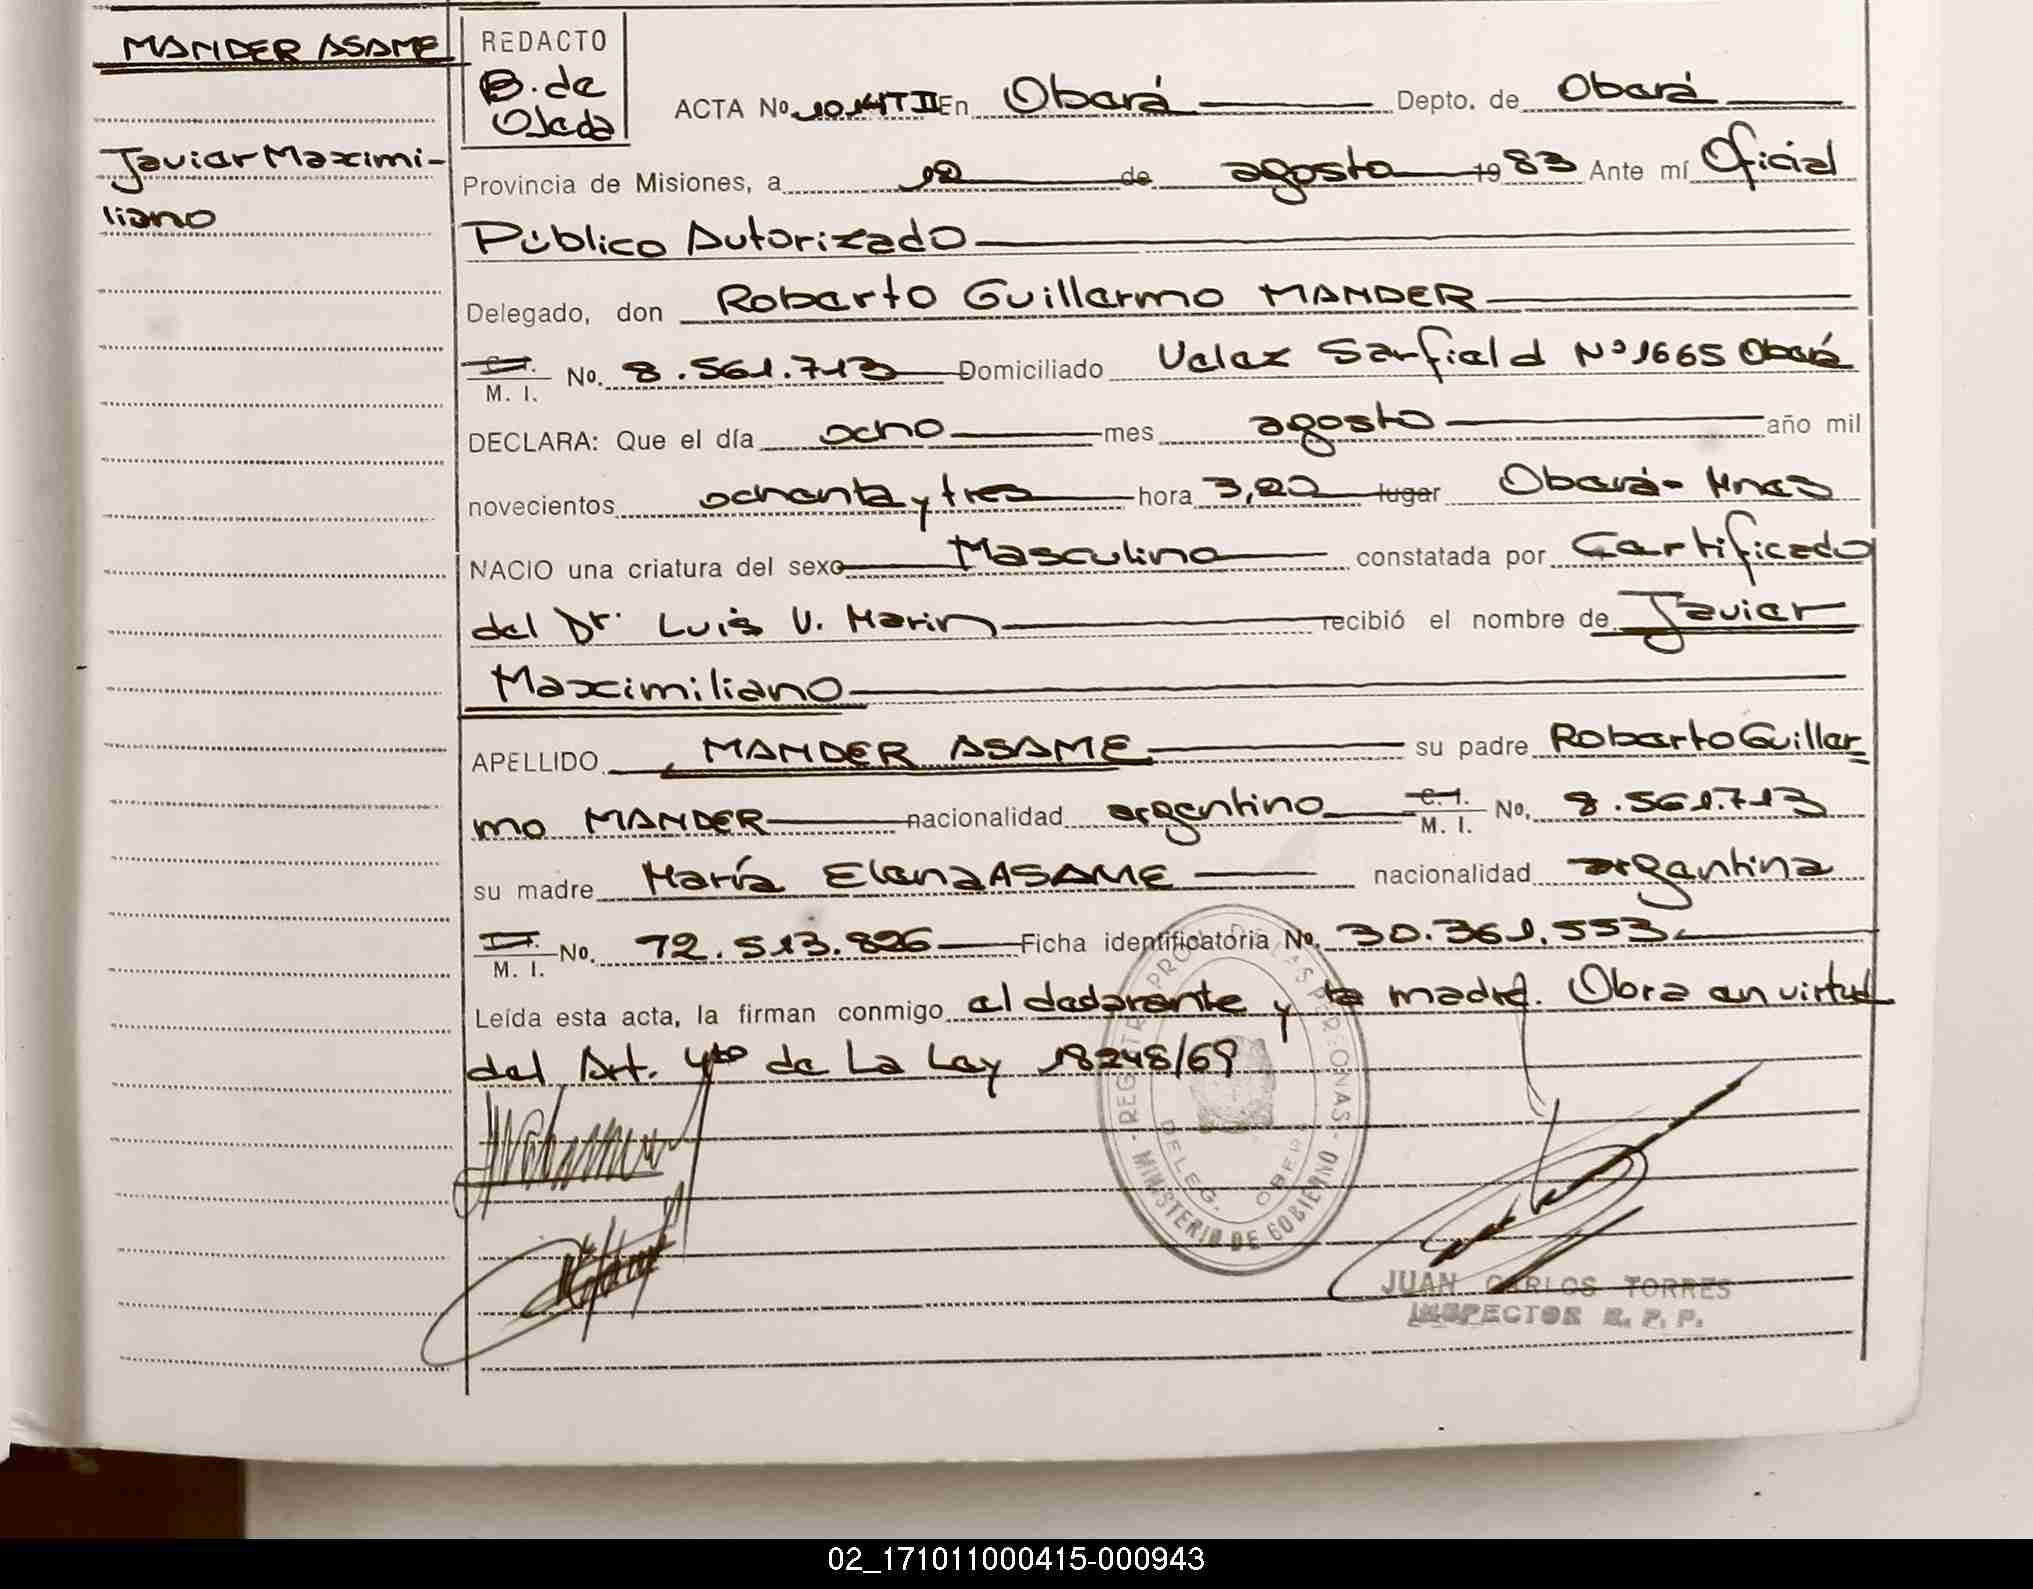 MANDER ASAME
Javier Maximi-
liano
REDACTO
B. de
Ojeda
ACTA No. 1014TII En Oberá Depto. de Oberá
Provincia de Misiones, a 12 de agosto 1983 Ante mí Oficial
Público Autorizado
Delegado, don Roberto Guillermo MANDER
M. I. No. 8.561.713 Domiciliado Velez Sarfield Nº 1665 Oberá
DECLARA: Que el día ocho mes agosto año mil
novecientos ochenta y tres hora 3,20 lugar Oberá- Mnes
NACIO una criatura del sexo Masculino constatada por Certificado
del Dr. Luis V. Marin recibió el nombre de Javier
Maximiliano
APELLIDO MANDER ASAME su padre Roberto Guiller
mo MANDER nacionalidad argentino C.I. M. I. No. 8.561.713
su madre María Elena ASAME nacionalidad argentina
M. I. No. 12.513.826 Ficha identificatoria No. 30.361.553
Leída esta acta, la firman conmigo el declarante y la madre. Obra en virtud
del Art. 4to de La Ley 18248/69
REGISTRO PROV. DE LAS PERSONAS
MINISTERIO DE GOBIERNO
DELEG. OBERA
JUAN CARLOS TORRES
INSPECTOR R. P. P.
02_171011000415-000943